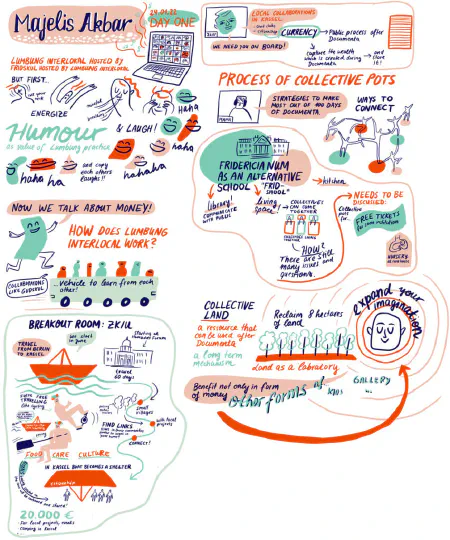 Majelis Akbar
DAY ONE
LUMBUNG INTERLOKAL HOSTED BY
FRIDSKUL HOSTED BY LUMBUNG INTERLOKAL
BUT FIRST..
ENERGIZE
HaHa
Humour
& LAUGH!
as value of Lumbung practice
haha
haha ha
and copy
each others
laughs!!
hahaha
NOW WE TALK ABOUT MONEY!
HOW DOES LUMBUNG
INTERLOKAL WORK?
COLLABORATIONS
LIKE GUDSKUL
vehicle to learn from each
other!
BREAKOUT ROOM: ZK/U
TRAVEL
FROM BERLIN
TO KASSEL
travel
60 days
small
villages
FIND LINKS
with local
projects
CONNECT!
FOOD CARE CULTURE
IN KASSEL BOAT BECOMES A SHELTER
citizenship
20.000 €
for local projects, meals
camping in Kassel
LOCAL COLLABORATIONS
IN KASSEL
CURRENCY
Public process after
Documenta
WE NEED YOU ON BOARD!
capture the wealth
which is created during
Documenta
and
share
it!
PROCESS OF COLLECTIVE POTS
STRATEGIES TO MAKE
MOST OUT OF 100 DAYS
OF DOCUMENTA
WAYS TO
CONNECT
FRIDERICIANUM
AS AN ALTERNATIVE
SCHOOL
"FRID-
SCHOOL"
kitchen
library
living
space
COLLECTIVES
CAN COME
TOGETHER
HOW?
There are still
many issues and
questions.
NEEDS TO BE
DISCUSSED:
Collective
pots for..
FREE TICKETS
NURSERY
COLLECTIVE
LAND
a resource that
can be used after
Documenta
a long term
mechanism
Reclaim 8 hectares
of land
Land as a laboratory
expand your
imagination
Benefit not only in form
of money
Other forms of
KIOS
GALLERY